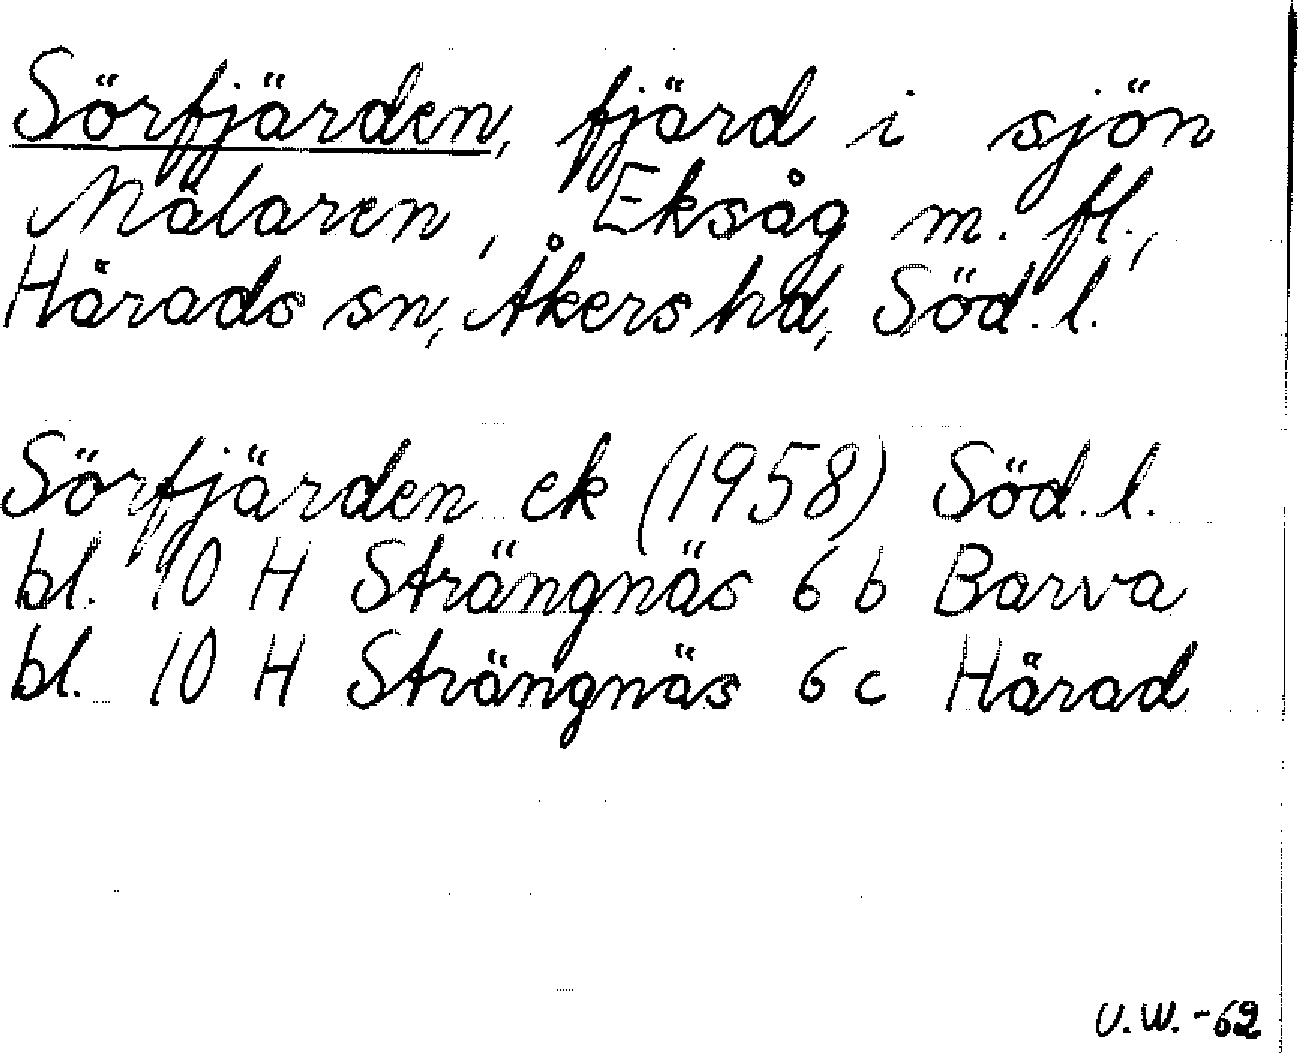 Sörfjärden, fjärd i sjön
Mälaren, Eksåg m. fl.,
Härads sn, Åkers hd, Söd. l.
Sörfjärden ek (1958) Söd. l.
bl. 10 H Strängnäs 6 b Barva
bl. 10 H Strängnäs 6 c Härad
U.W. -62